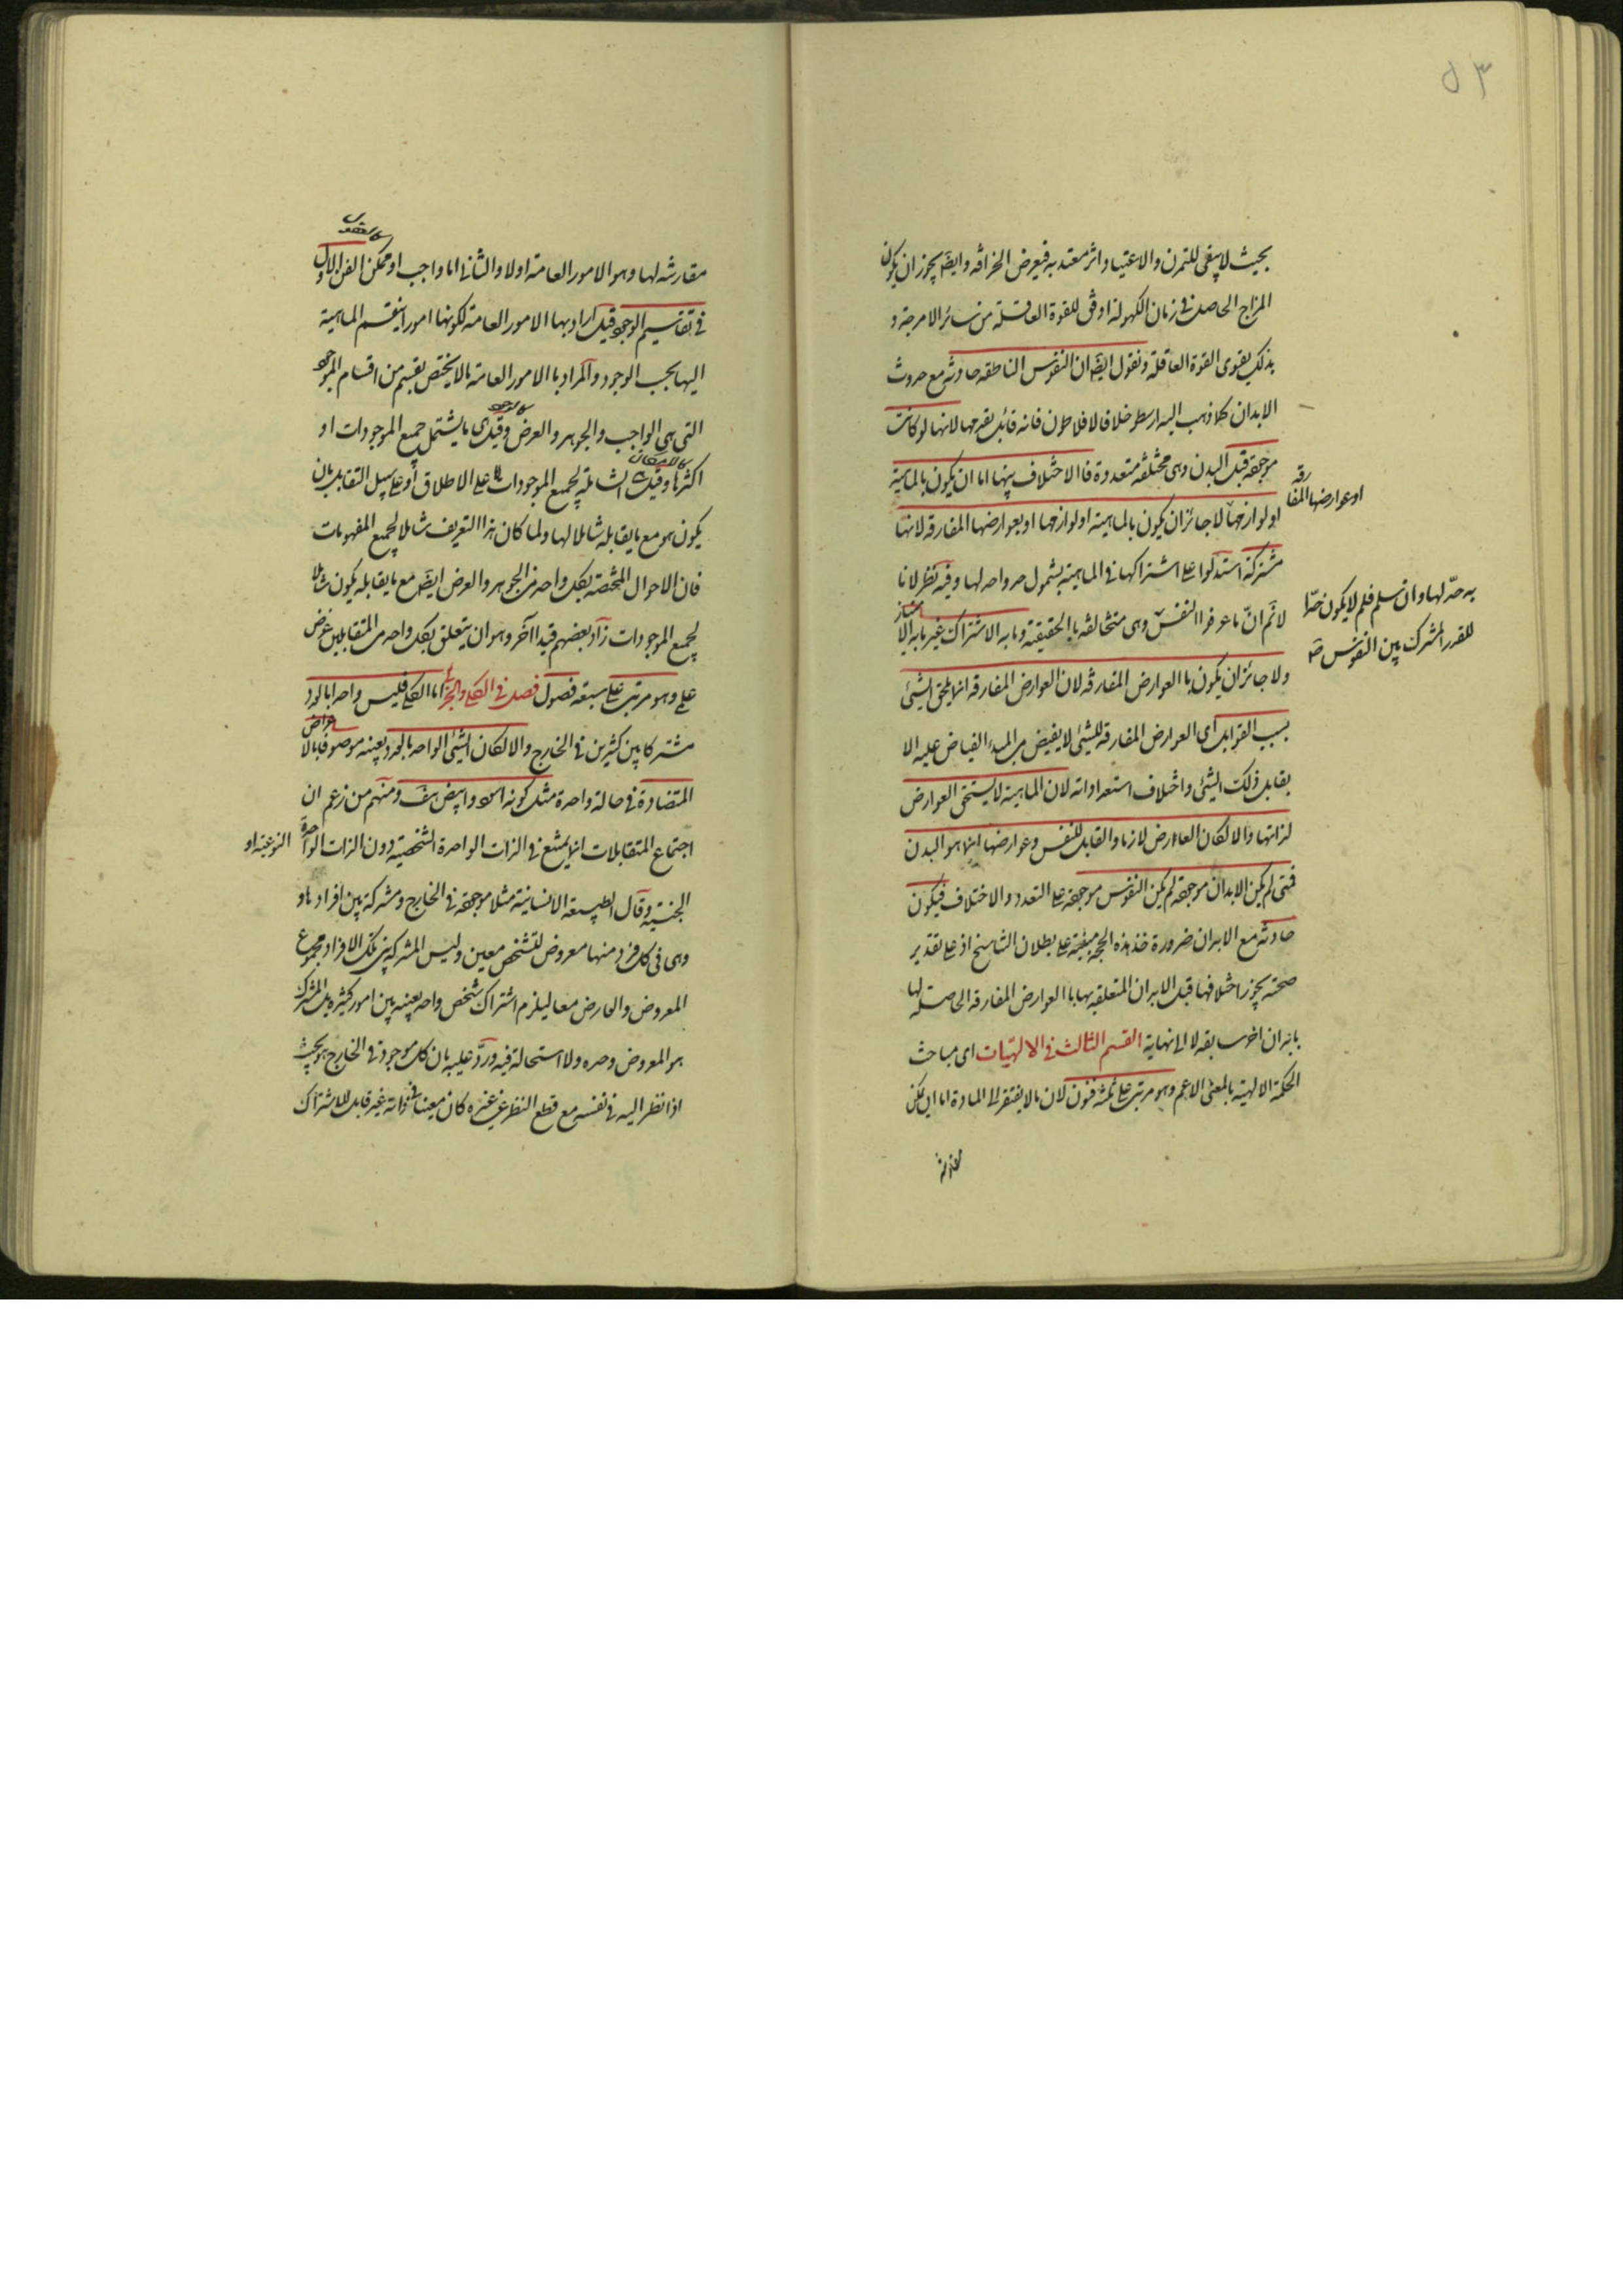 ٥٣
بحيث لا يبقى للتمرن والاعتياد اثر معتد به فيعرض الخرافة وايضا يجوز ان يكون
المزاج الحاصل فى زمان الكهولة اوفق للقوة العاقلة من سائر الامزجة و
بذلك يقوى القوة العاقلة ونقول ايضا ان النفوس الناطقه حادثه مع حدوث
الابدان كما ذهب اليه ارسطو خلافا لافلاطون فانه قائل بقدمها لانها لو كانت
موجوده قبل البدن وهى مختلفه متعددة فالاختلاف بينها اما ان يكون بالماهية
او لوازمها
او عوارضها المفا
رقه
لا جائز ان يكون بالماهية او لوازمها او بعوارضها المفارقه لانها
مشتركة استدلوا على اشتراكها فى الماهية بشمول حد واحد لها وفيه نظر لانا
لا نم ان ما عرفوا النفس
به حد لها وان سلم فلم لا يكون حدا
للقدر المشترك بين النفوس صح
وهى متخالفه بالحقيقة وما به الاشتراك غير ما به الا
متياز
ولا جائز ان يكون باالعوارض المفارقه لان العوارض المفارقه انما يلحق الشيئ
بسبب القوابل اى العوارض المفارقه للشيئ لا يفيض من المبدء الفياض عليه الا
بقابل ذلك الشيئ واختلاف استعداداته لان الماهية لا يستحق العوارض
لذاتها والا لكان العاارض لازما والقابل للنفس وعوارضها انما هو البدن
فمتى لم يكن الابدان موجوده لم يكن النفوس موجوده على التعدد والاختلاف فيكون
حادثه مع الابدان ضرورة هذه الحجة مبنية على بطلان التناسخ اذ على تقدير
صحته يجوز اختلافها قبل الابدان المتعلقه بها باالعوارض المفارقه الحاصله لها
بابدان اخر سابقه لا الى نهاية القسم الثالث فى الالهيّات اى مباحث
الحكمة الالهية بالمعنى الاعم وهو مرتب على ثلثه فنون لان ما لا يفتقر الى المادة اما ان لم يكن
مقارنه لها وهو الامور العامة اولا والثانى اما واجب او ممكن الفن الاول
فى تقاسيم الوجود قيل اراد بها الامور العامة لكونها امورا ينقسم الماهية
اليها بحسب الوجود والمراد باالامور العامة ما لا يختص بقسم من اقسام الموجود
التى هى الواجب والجوهر والعرض وقيل هى ما يشتمل جميع الموجودات او
كالوجود
اكثرها وقيل الشاملة لجميع الموجودات اما على الاطلاق او على سبيل التقابل بان
كالامكان
يكون هو مع ما يقابله شاملا لها ولما كان هذا التعريف شاملا لجميع المفهومات
فان الاحوال المختصة بكل واحد من الجوهر والعرض ايضا مع ما يقابله يكون شاملا
لجميع الموجودات زاد بعضهم قيدا آخر وهو ان يتعلق بكل واحد من المتقابلين غرض
علمى وهو مرتب على سبعة فصول فصل فى الكلى والجزئى اما الكلى فليس واحدا بالعدد
مشتركا بين كثيرين فى الخارج والا لكان الشيئ الواحد بالعدد بعينه موصوفا بالا
عراض
المتضادة فى حالة واحدة مثل كونه اسود وابيض هف ومنهم من زعم ان
اجتماع المتقابلات انما يمتنع فى الذات الواحدة الشخصية دون الذات الواحدة النوعية او
الجنسية وقال الطبيعة الانسانية مثلا موجوده فى الخارج ومشتركة بين افرادها و
وهى فى كل فرد منها معروض لتشخص معين وليس المشترك بين تلك الافراد مجموع
المعروض والعارض معا ليلزم اشتراك شخص واحد بعينه بين امور كثيرة بل المشترك
هو المعروض وحده ولا استحالة فيه وردّ عليه بان كل موجود فى الخارج هو بحيث
اذا نظر اليه فى نفسه مع قطع النظر عن غيره كان معينا فى ذاته غير قابل للاشتراك